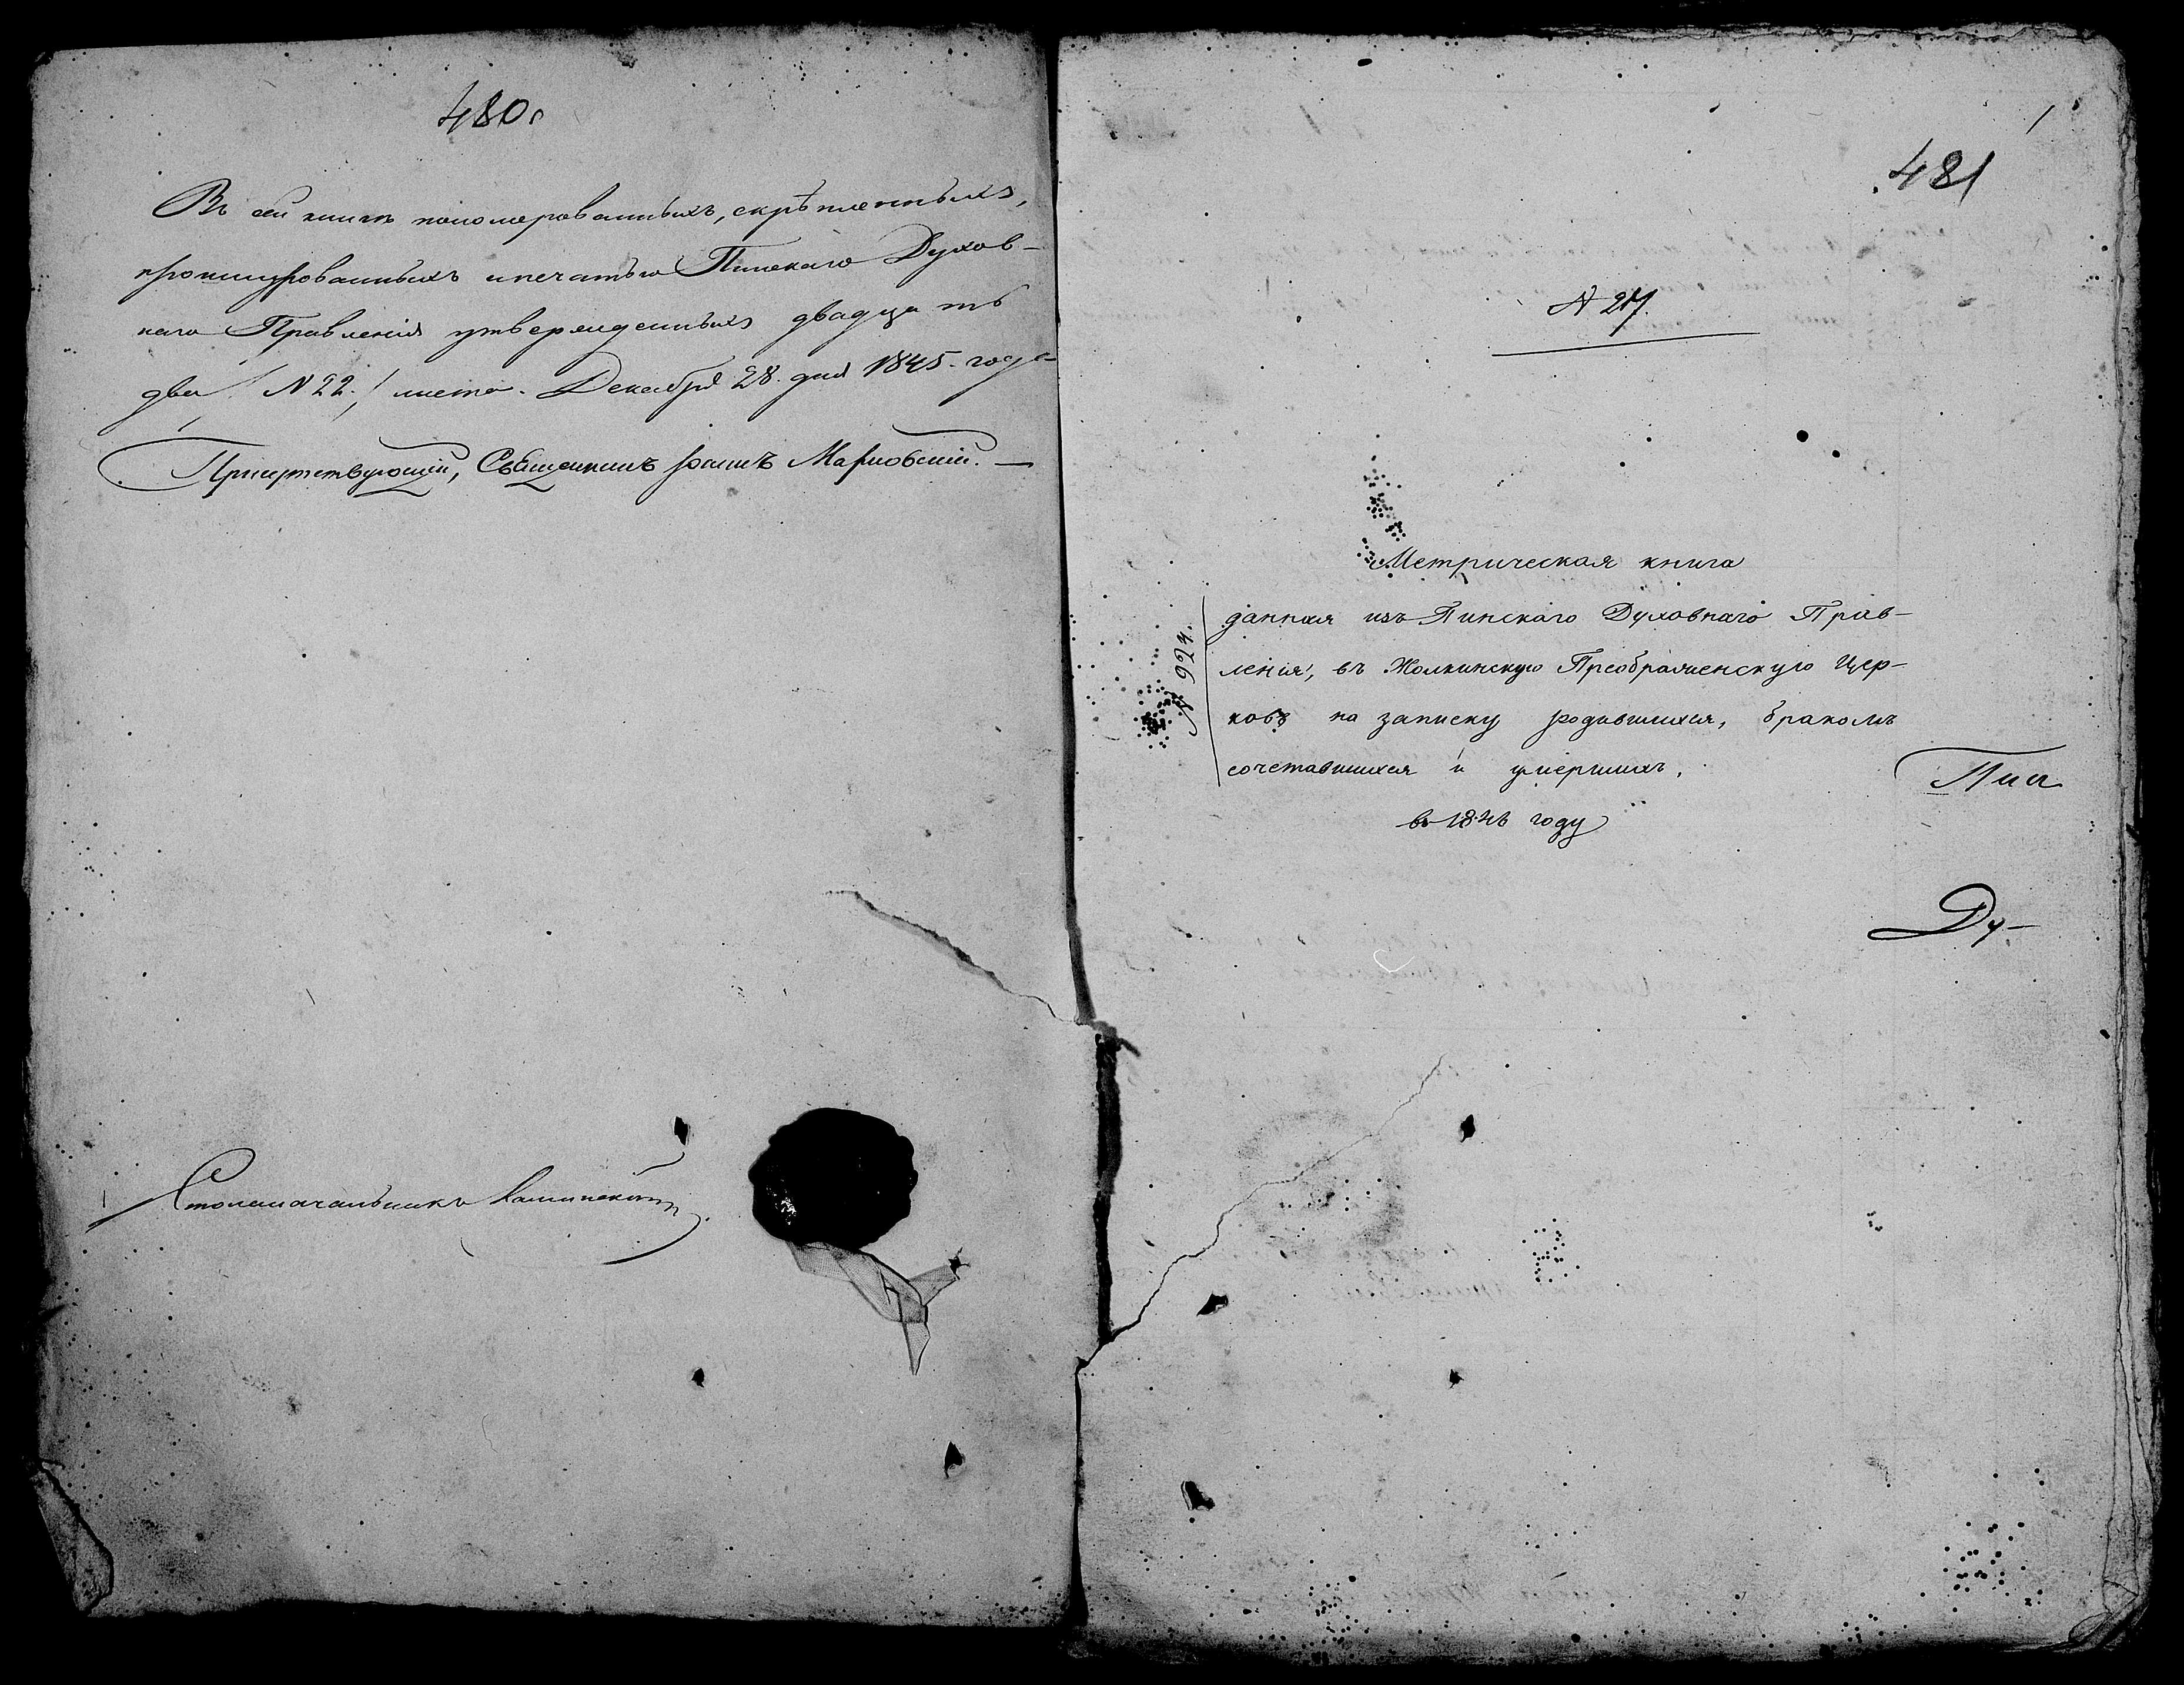 480
Въ сей книгѣ пономерованныхъ, скрѣпленныхъ,
прошнурованныхъ и печатью Пинскаго Духов-
наго Правленія утвержденныхъ двадцать
два / N 22. / листа. Декабря 28. дня 1845. года
Присутствующій, Священникъ Іоаннъ Марковскій. —
Столоначальникъ
1
481
N 27.
Метрическая книга
данная изъ Пинскаго Духовнаго Прав-
ленія, въ Жолкинскую Преображенскую Цер-
ковь на записку родившихся, бракомъ
сочетавшихся и умершихъ,
въ 1846 году
N 924.
Пин
Ду-